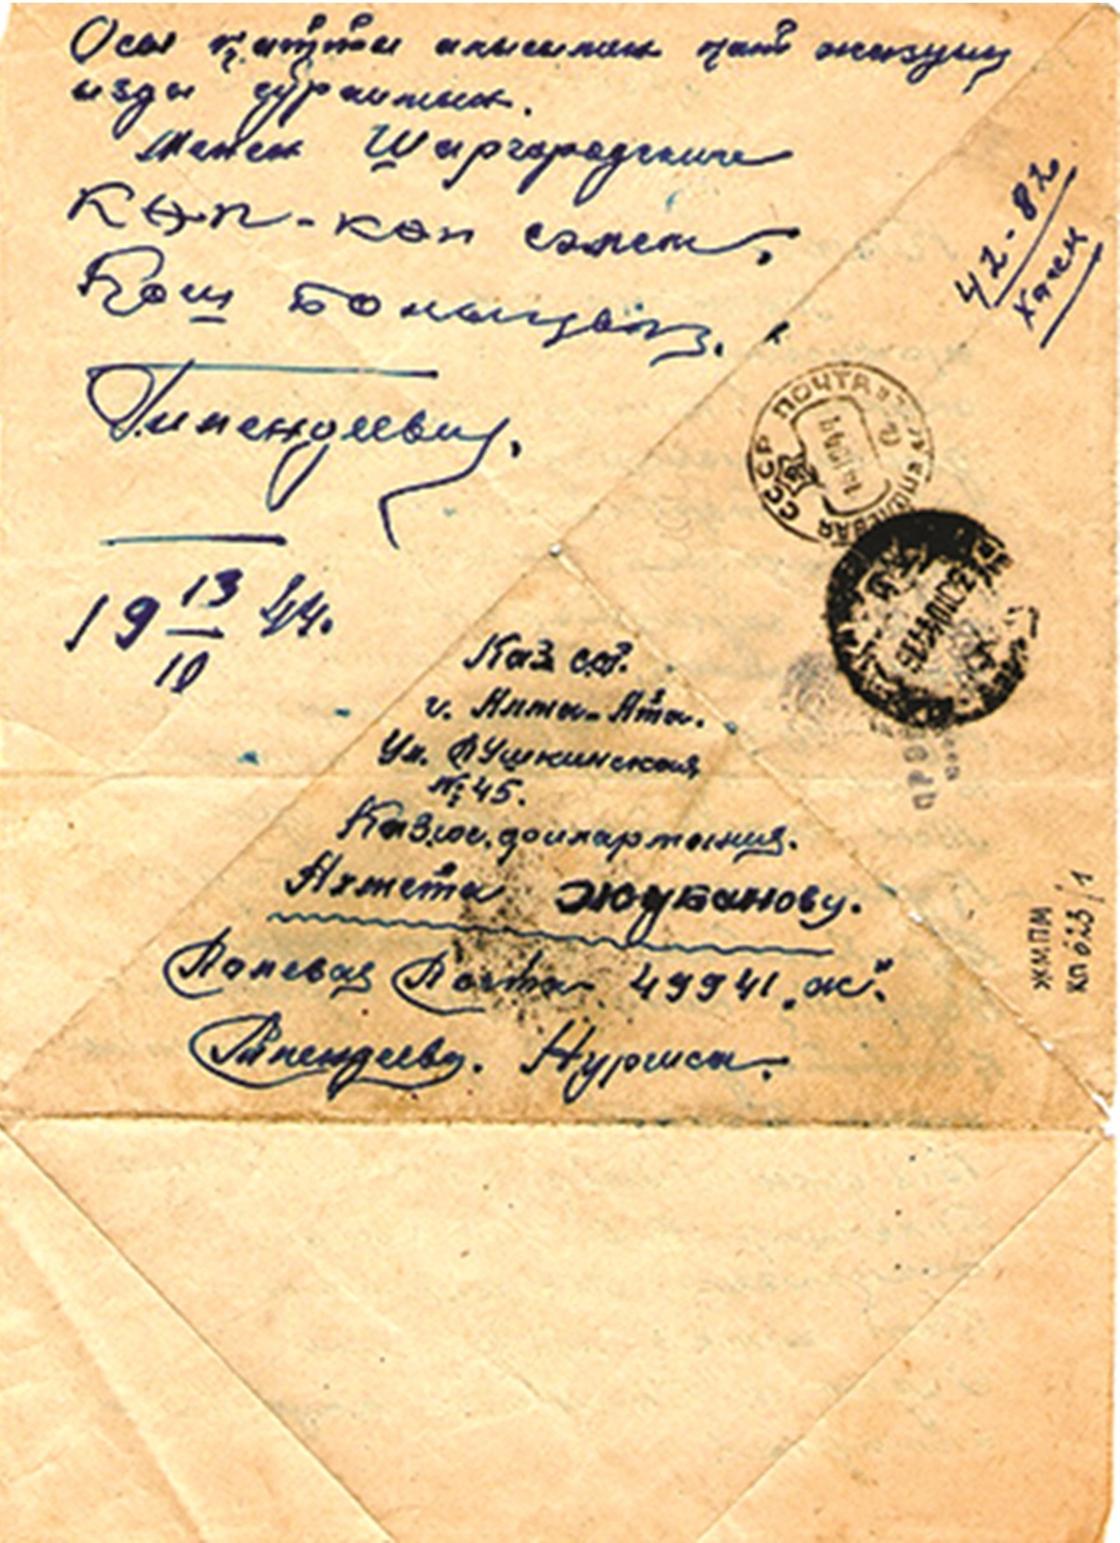 Осы қатты алысымен қат жазуың
ызды сұраймын.
Менен Шаргородскиге
Көп-көп сәлем.
Қош болыңыз.
Тілендиевиң,
19 13/10 44.
42-82
Хасен
ПОЧТА
СССР
ПОЛЕВАЯ
Каз ССР.
г. Алма-Ата.
Ул. Пушкинская
№ 45.
Каз.гос.
Ахмета Жубанову.
Полевая Почта 49941 "ж".
Тлендиева. Нургиса.
ЖМПМ
КП 623/1